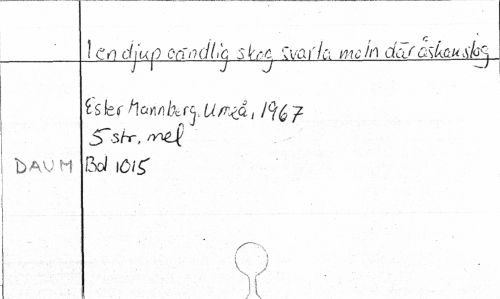 I en djup oändlig skog svarta moln där åskan slog
Ester Mannberg, Umeå, 1967
5 str. mel
DAUM Bd 1015